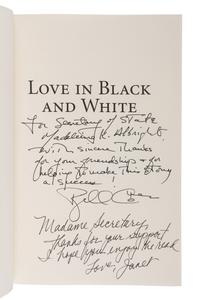 LOVE IN BLACK
AND WHITE
For Secretary of State
Madeleine K. Albright,
With sincere thanks
for your friendship & for
helping to make this story
a success!
Bill Cohen
Madame Secretary,
Thanks for your support
I hope you enjoy the read
Love, Janet